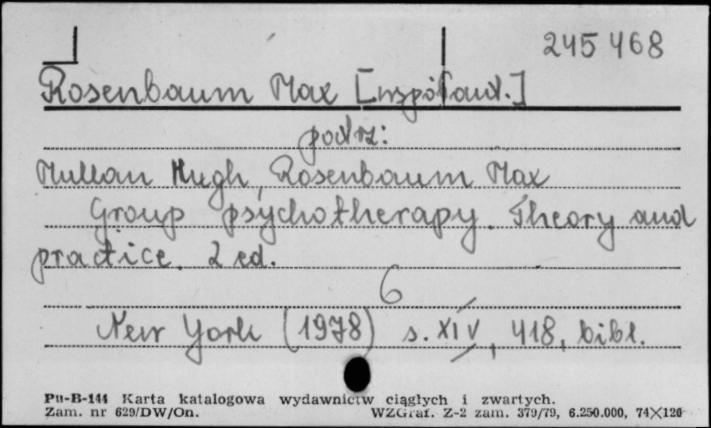 245468
Rosenbaum Max [współaut.]
patrz:
Mullan Hugh, Rosenbaum Max
Group psychotherapy. Theory and
practice. 2 ed.
6
New York (1978) s. XIV, 418, bibl.
Pu-B-144 Karta katalogowa wydawnictw ciągłych i zwartych.
Zam. nr 629/DW/On. WZGraf. Z-2 zam. 379/79, 6.250.000, 74×120